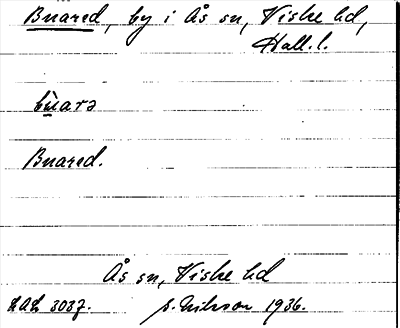 Buared, by i Ås sn, Viske hd,
Hall.l.
bùarə
Buared.
Ås sn, Viske hd
LAL 3037. S. Nilsson 1936.